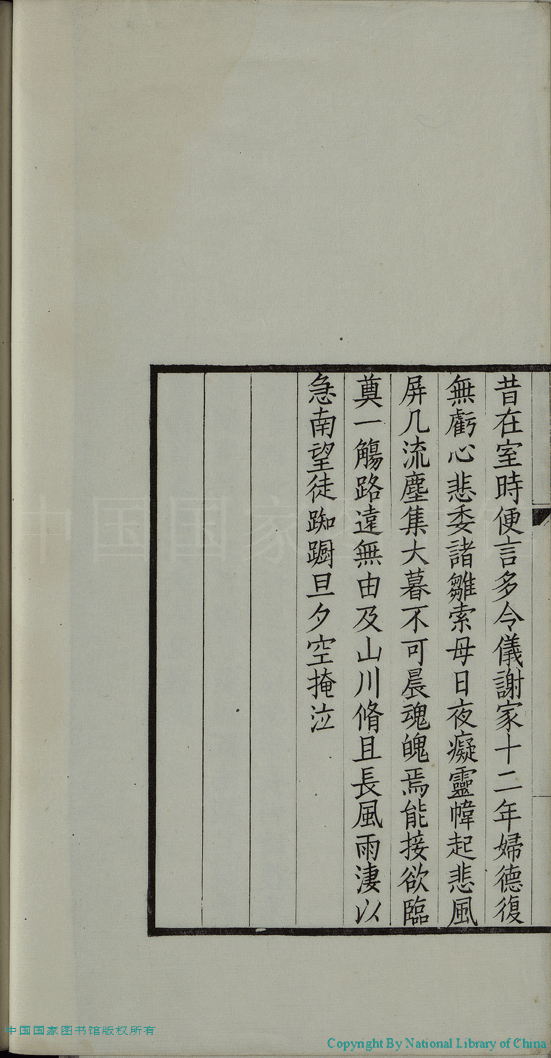 昔在室時便言多令儀謝家十二年婦德復
無虧心悲委諸雛索母日夜癡靈幃起悲風
屏几流塵集大暮不可晨魂魄焉能接欲臨
奠一觴路遠無由及山川脩且長風雨淒以
急南望徒踟躕旦夕空掩泣
中国国家图书馆版权所有
Copyright By National Library of China